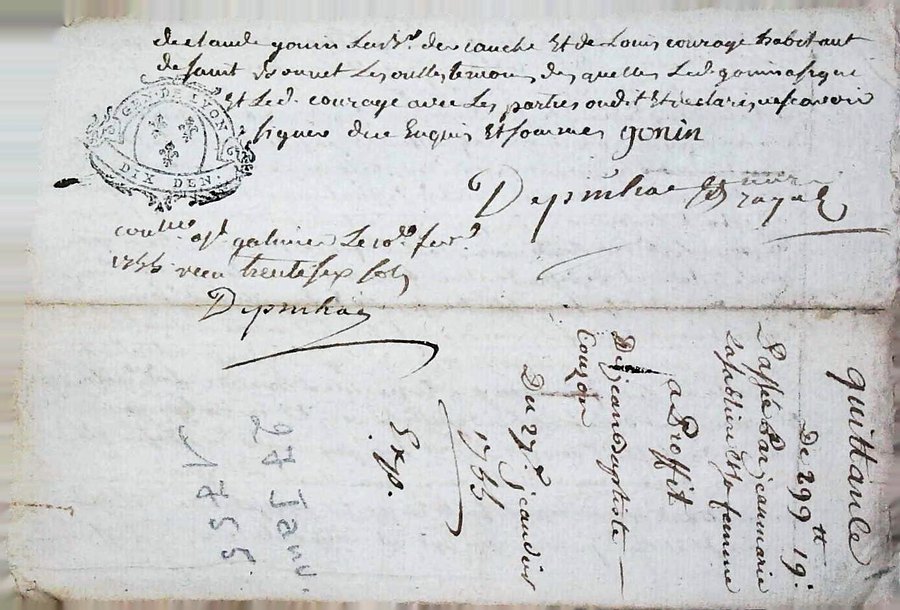 de Claude gonin Lab.r de couche Et de Louis courage habitant
de saint bonnet Les oulles temoins desquels Led. gonin a signé
Et Led. courage avec Les parties ont dit Et declaré ne scavoir
signer de ce Enquis Et sommés gonin
GEN. DE LYON
DIX DEN.
Depinhac
Con.lle a s.t galmier Le 10.e fev.r
1755 recu trente six sols
Depinhac
quittance
De 299 tt 19.
Passée Par jeanmarie
femme
a Proffit
De jean Baptiste
Couzon
Du 27.e Jeanvier
1755
Exp.
27 Janv.
1755